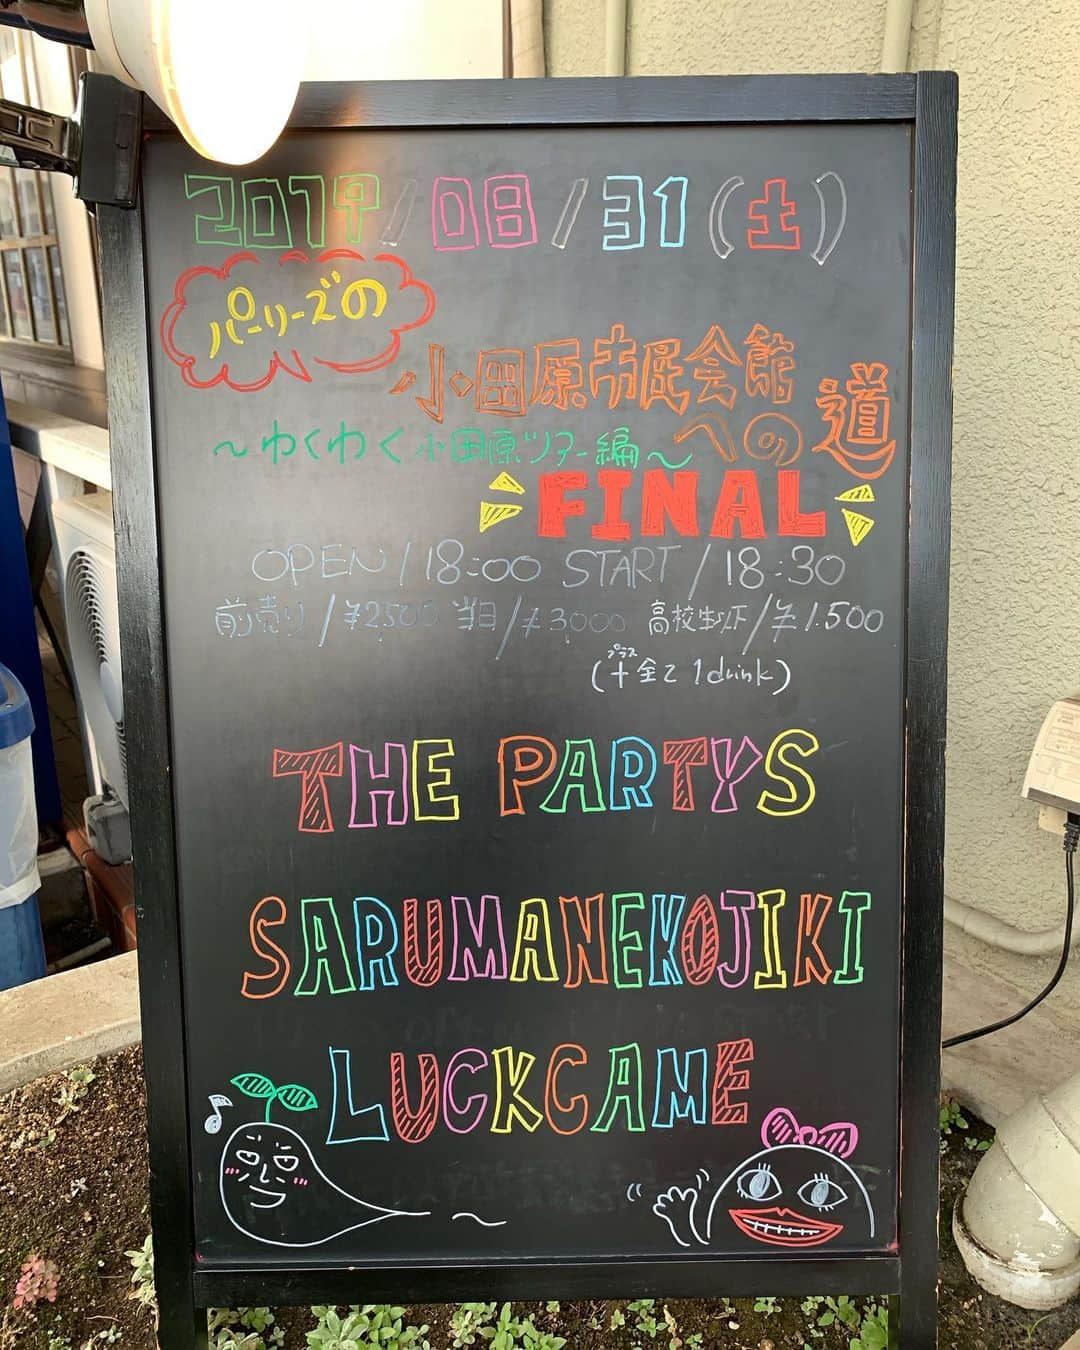 2019/08/31(土)
パーリーズの
小田原市民会館
への道
〜わくわく小田原ツアー編〜
FINAL
OPEN/18:00 START/18:30
前売り/¥2500 当日/¥3000 高校生以下/¥1.500
プラス
(+全て1drink)
THE PARTYS
SARUMANEKOJIKI
LUCKCAME